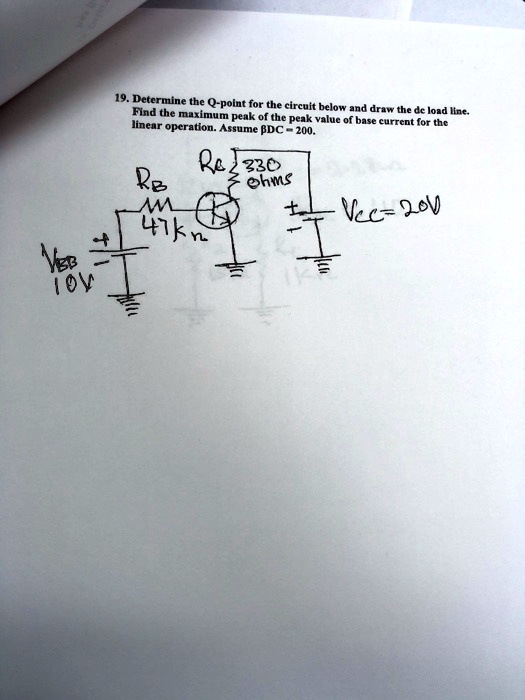 19. Determine the Q-point for the circuit below and draw the dc load line.
Find the maximum peak of the peak value of base current for the
linear operation. Assume βDC = 200.
RC 330
ohms
RB
47k
VCC = 20V
+
-
+
-
VBB
10V